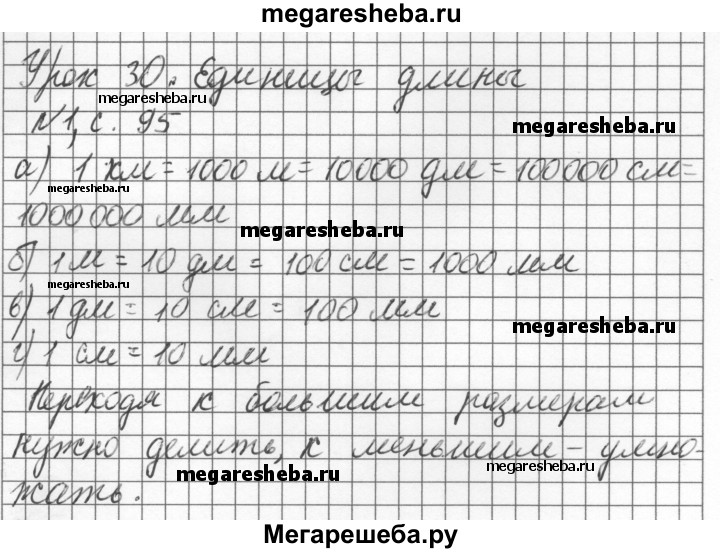 megaresheba.ru
Урок 30. Единицы длины
megaresheba.ru
N1, с. 95
megaresheba.ru
а) 1 км = 1000 м = 10000 дм = 100000 см =
megaresheba.ru
1000 000 мм
megaresheba.ru
б) 1 м = 10 дм = 100 см = 1000 мм
в) 1 дм = 10 см = 100 мм
megaresheba.ru
г) 1 см = 10 мм
Переходя к большим размерам
нужно делить, к меньшим – умно-
megaresheba.ru
megaresheba.ru
жать.
Мегарешеба.ру